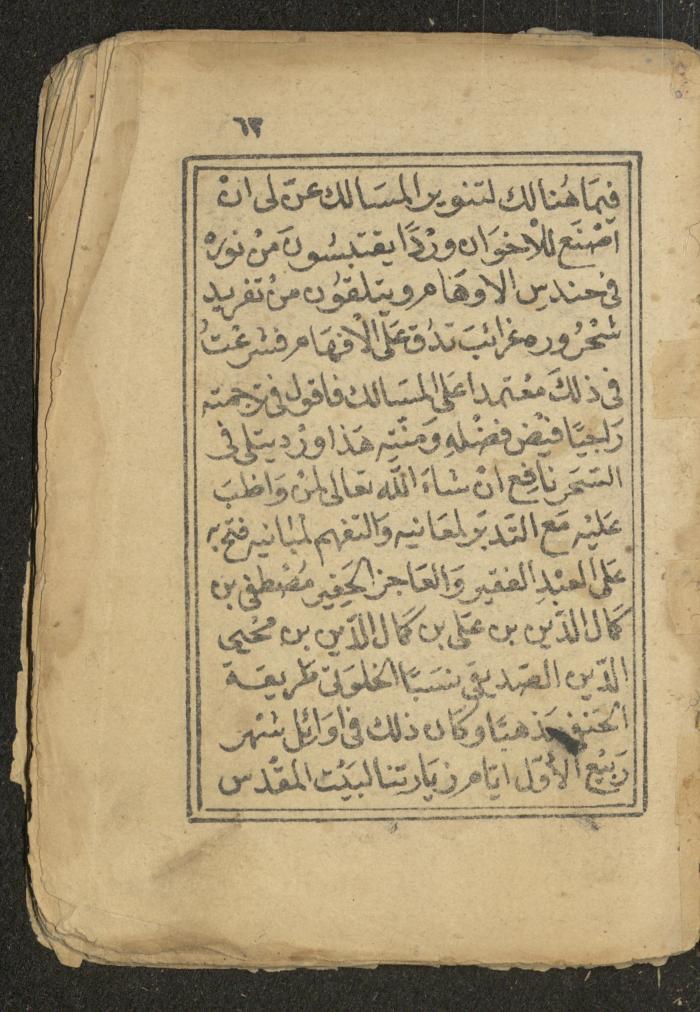 ٦٣
فِيمَا هُنالك لتنوير المسَالك عنّ لى انْ
اصْنَع للاخوَان ورْدًا يقتبسُونَ منْ نوره
فى حندسِ الاوهَام ويتلقوُن منْ تغريد
شحْروره غرائبَ تدُق عَلَى الْافهَام فشرعْتُ
فى ذلكَ معْتمدا عَلى المسَالك فاقول فى ترجمته
رَاجيًا فيْض فضْلهِ وَمنّتِه هَذا ورْد يتلى فى
السّحَر نافِع انْ شاءَ اللّه تعالى لمنْ وَاظبَ
عَليْه مَع التّدبّر لمعَانيه وَالتفهم لمبَانيه فتح به
عَلى العبْدِ الفقير وَالعَاجز الحَقير مصْطفى بن
كمَال الدّين بن عَلى بن كمَال الدّين بن محْيى
الدّين الصّديقى نسَبًا الخلوَتى طريقَة
الحَنفى مذهبًا وكان ذلك فى اوَائل شهْر
رَبيْع الأوّل ايّام زيَارتِنا لبَيْت المقْدس